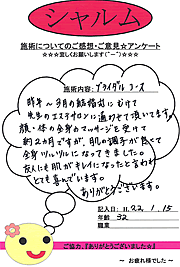 シャルム
施術についてのご感想・ご意見☆アンケート
☆☆☆宜しくお願いします(^ー^)☆☆☆
施術内容: ブライダルコース
昨年〜9月の結婚式にむけて
先生のエステサロンに通わせて頂いてます。
顔・体の全身のマッサージを受けて
約2ヵ月ですが、肌の調子が良くて
全身ツルツルになってきました。
友人にも肌がキレイになったと言われ
とても喜んでいます。
ありがとうございます。
記入日: H.22. 1. 15
年齢 32
職業
ご協力、『ありがとうございました☆』
〜 お疲れ様でした 〜